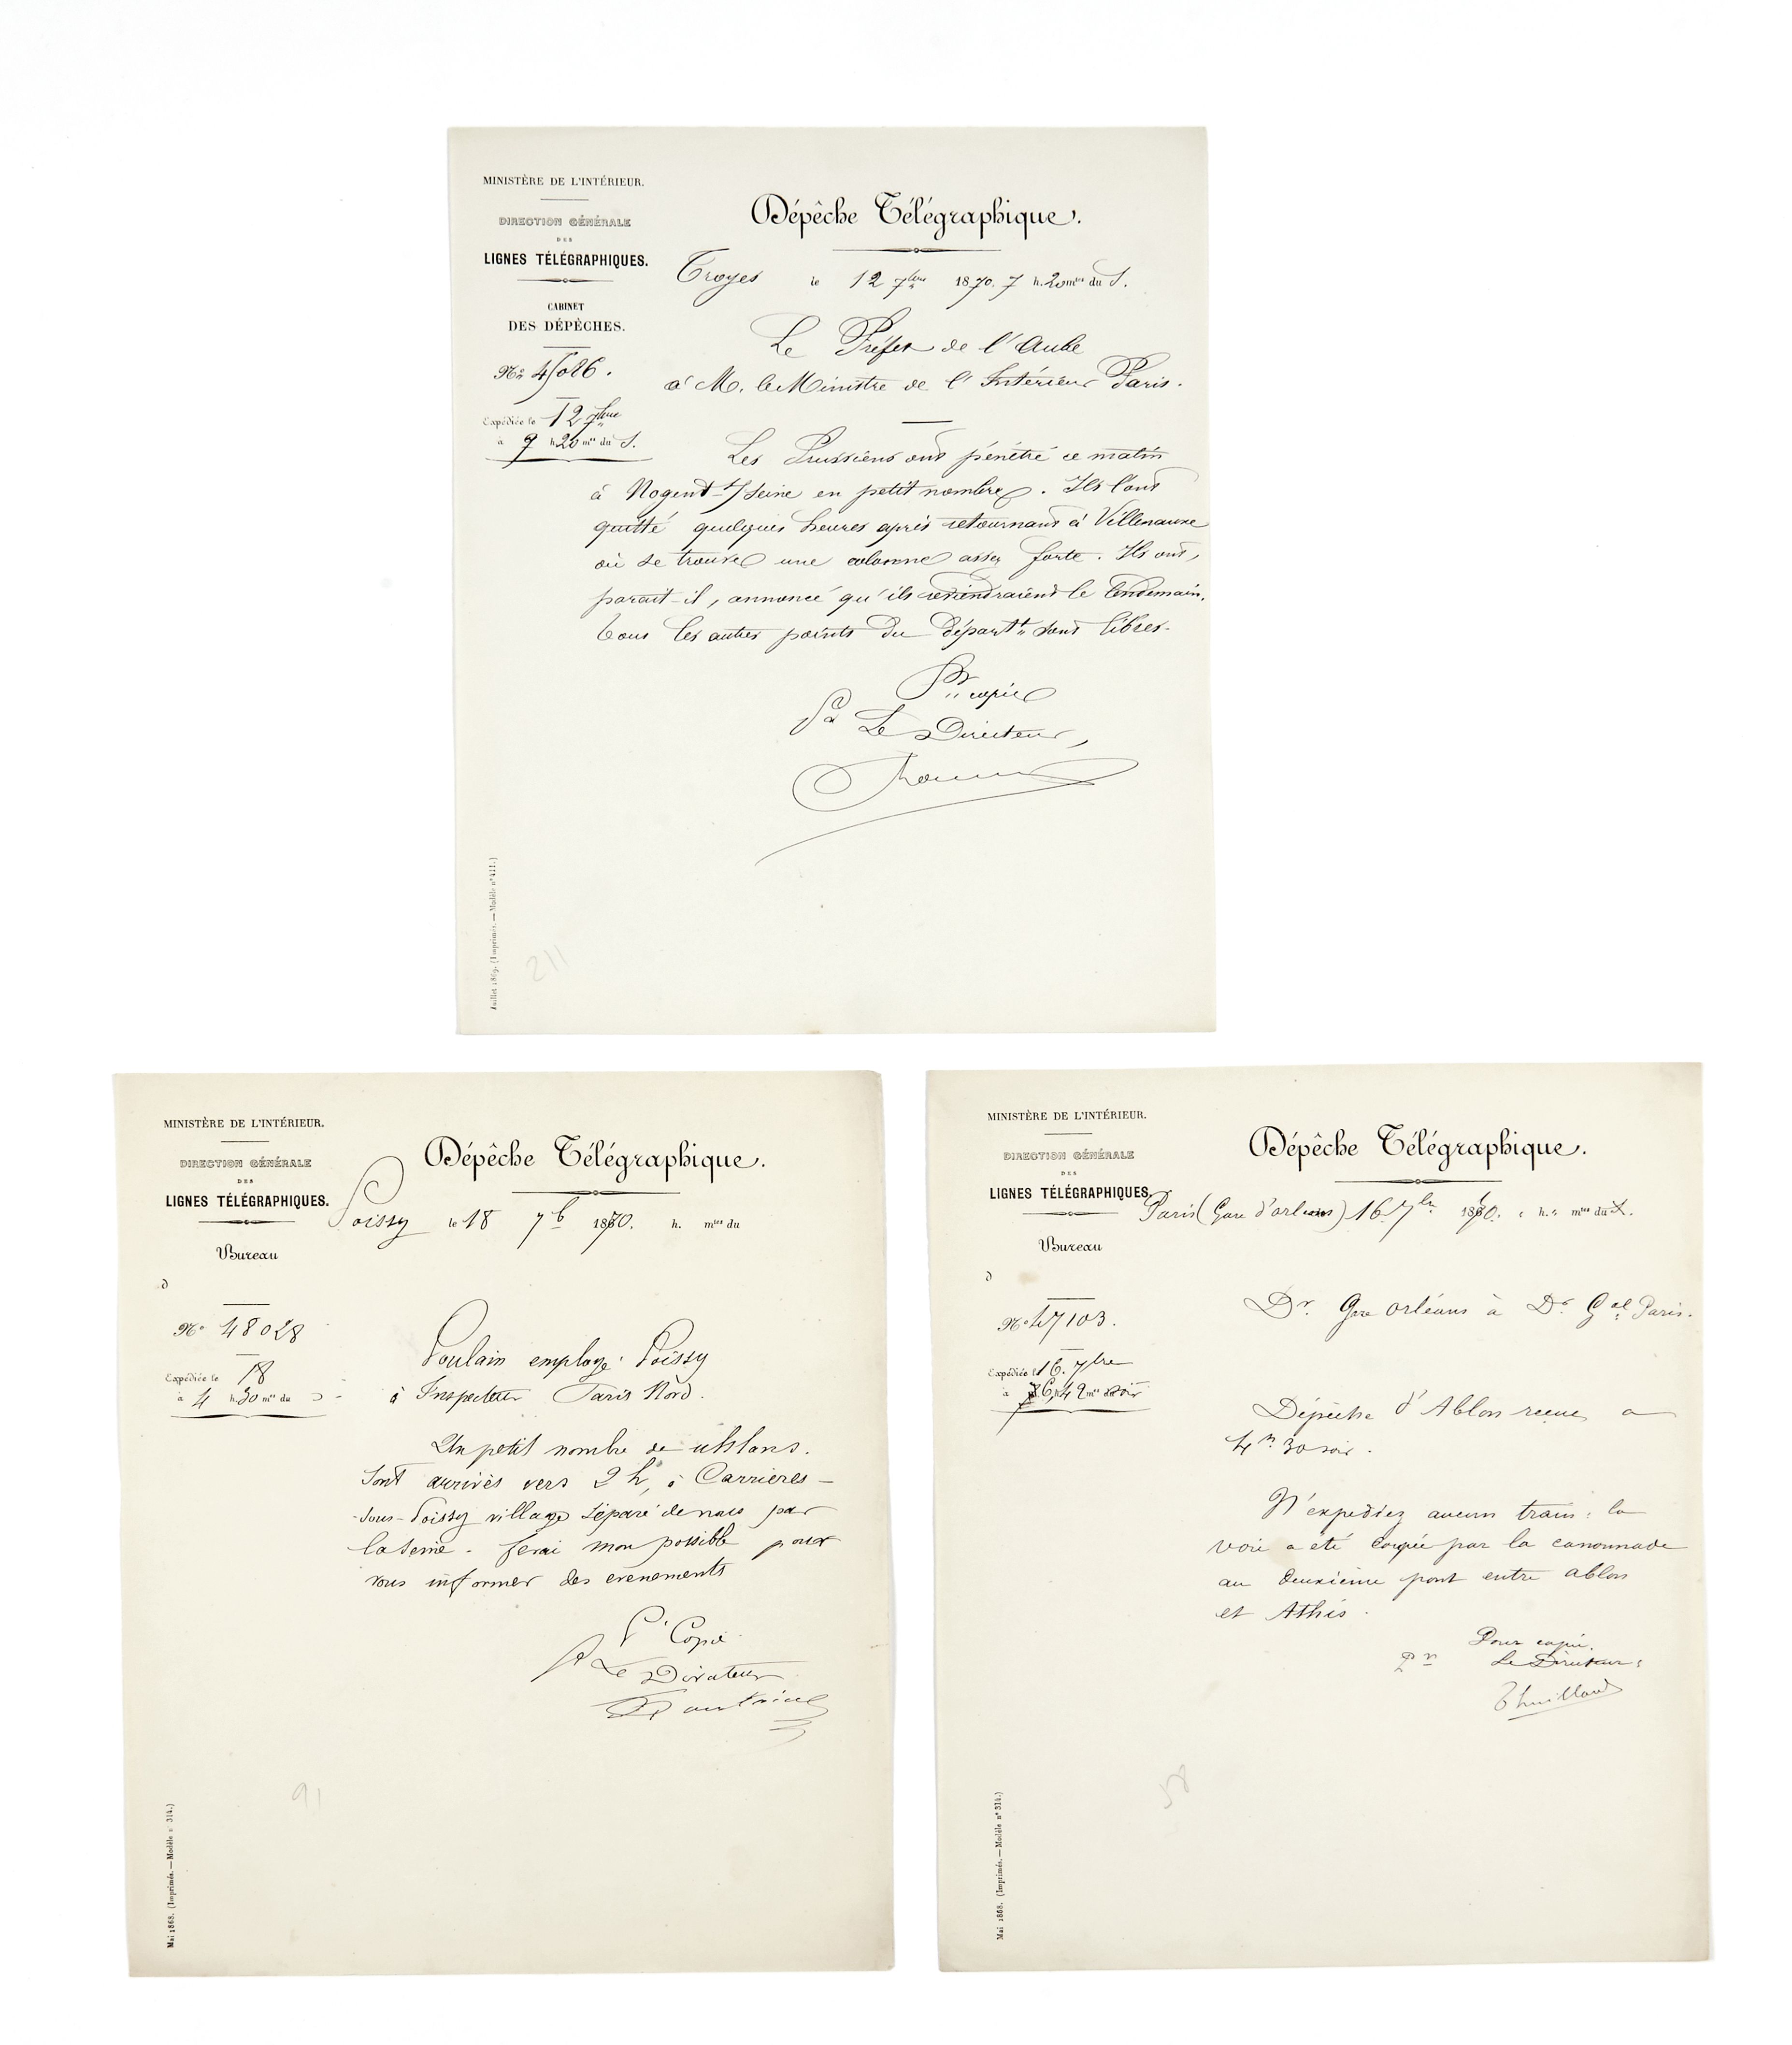 MINISTÈRE DE L'INTÉRIEUR.
DIRECTION GÉNÉRALE
DES
LIGNES TÉLÉGRAPHIQUES.
CABINET
DES DÉPÊCHES.
N° 45086.
Expédiée le 12 7bre
à 9 h 20 mes du S.
Dépêche Télégraphique.
Troyes le 12 7bre 1870. 7 h. 20 mes du S.
Le Préfet de l'Aube
à M. le Ministre de l'Intérieur Paris.
Les Prussiens ont pénétré ce matin
à Nogent s/ Seine en petit nombre. Ils l'ont
quitté quelques heures après retournant à Villenauxe
où se trouve une colonne assez forte. Ils ont,
parait-il, annoncé qu'ils reviendraient le lendemain.
Tous les autres points du départt sont libres.
Pr copie
Pr Le Directeur,
Juillet 1869. (Imprimés. — Modèle n° 411.)
211
MINISTÈRE DE L'INTÉRIEUR.
DIRECTION GÉNÉRALE
DES
LIGNES TÉLÉGRAPHIQUES.
Bureau
d
N° 48028
Expédiée le 18
à 4 h 30 mes du
Dépêche Télégraphique.
Poissy le 18 7b 1870. h. mes du
Poulain employé Poissy
à Inspecteur Paris Nord.
Un petit nombre de uhlans.
Sont arrivés vers 2 h, à Carrières-
-sous-Poissy village séparé de nous par
la Seine. ferai mon possible pour
vous informer des evenements
Pr Copie
Pr Le Directeur
91
Mai 1868. (Imprimés. — Modèle n° 314.)
MINISTÈRE DE L'INTÉRIEUR.
DIRECTION GÉNÉRALE
DES
LIGNES TÉLÉGRAPHIQUES.
Bureau
d
N° 47103.
Expédiée le 16. 7bre
à 6 h 42 mes du soir
Dépêche Télégraphique.
Paris (Gare d'orleans) 16 7bre 1870. " h. " mes du S.
Dr. Gare Orléans à Dr Gal Paris.
Dépêche d'Ablon recue a
4 h 30 soir.
N'expediez aucun train: la
voie a été coupée par la canonnade
au deuxième pont entre ablon
et Athis.
Pour copie.
Pr Le Directeur:
Thuilland
58
Mai 1868. (Imprimés. — Modèle n° 314.)